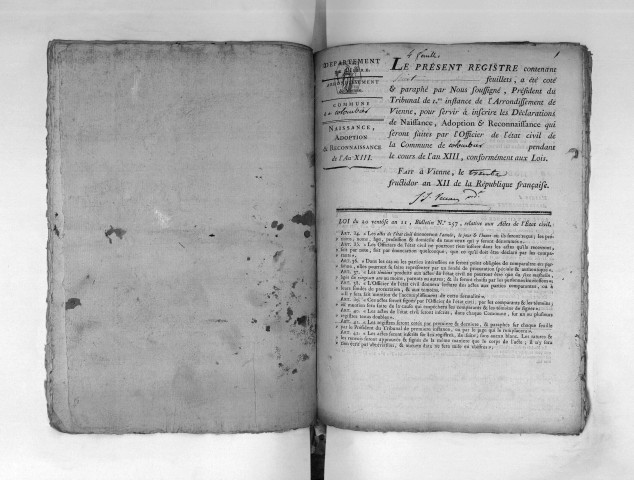 4 feuille 1
DÉPARTEMENT
COMMUNE
de colombier
NAISSANCE,
ADOPTION
& RECONNAISSANCE
de l'An XIII.
LE PRÉSENT REGISTRE contenant
huit feuillets, a été coté
& paraphé par Nous soussigné, Président du
Tribunal de 1.re instance de l'Arrondissement de
Vienne, pour servir à inscrire les Déclarations
de Naissance, Adoption & Reconnaissance qui
seront faites par l'Officier de l'état civil de
la Commune de colombier pendant
le cours de l'an XIII, conformément aux Lois.
FAIT à Vienne, le trente
fructidor an XII de la République française.
LOI du 20 ventôse an 11, Bulletin N.° 257, relative aux Actes de l'État civil.
ART. 34. « Les actes de l'état civil énonceront l'année, le jour & l'heure où ils seront reçus, les pré-
» noms, noms, âge, profession & domicile de tous ceux qui y seront dénommés ».
ART. 35. « Les Officiers de l'état civil ne pourront rien insérer dans les actes qu'ils recevront,
» soit par note, soit par énonciation quelconque, que ce qui doit être déclaré par les compa-
» rans ».
ART. 36. « Dans les cas où les parties intéressées ne seront point obligées de comparaître en per-
» sonne, elles pourront se faire représenter par un fondé de procuration spéciale & authentique ».
ART. 37. « Les témoins produits aux actes de l'état civil ne pourront être que du sexe masculin,
» âgés de vingt-un ans au moins, parens ou autres; & ils seront choisis par les personnes intéressées ».
ART. 38. « L'Officier de l'état civil donnera lecture des actes aux parties comparantes, ou à
» leurs fondés de procuration, & aux témoins.
» Il y sera fait mention de l'accomplissement de cette formalité ».
ART. 39. « Ces actes seront signés par l'Officier de l'état civil, par les comparans & les témoins;
» ou mention sera faite de la cause qui empêchera les comparans & les témoins de signer ».
ART. 40. « Les actes de l'état civil seront inscrits, dans chaque Commune, sur un ou plusieurs
» registres tenus doubles ».
ART. 41. « Les registres seront cotés par première & dernière, & paraphés sur chaque feuille
» par le Président du Tribunal de première instance, ou par le juge qui le remplacera ».
ART. 42. « Les actes seront inscrits sur les registres, de suite, sans aucun blanc. Les ratures &
» les renvois seront approuvés & signés de la même manière que le corps de l'acte; il n'y sera
» rien écrit par abréviation, & aucune date ne sera mise en chiffres ».